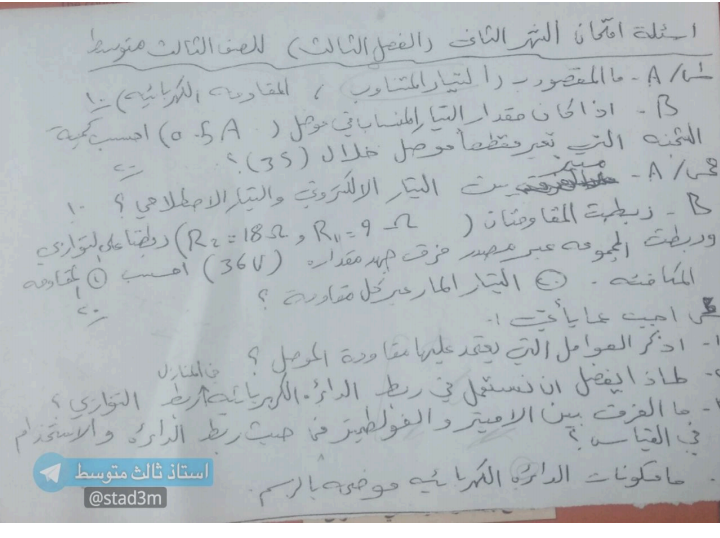 اسئلة امتحان الشهر الثاني (الفصل الثالث) للصف الثالث متوسط
س١/ A - ما المقصود بـ (التيار المتناوب ، المقاومة الكهربائية) ١٠
B - اذا كان مقدار التيار المنساب في موصل (0.5A) احسب كمية
الشحنة التي تعبر مقطعاً موصل خلال (3S) ؟ ٢٠
س٢/ A - ميز بين التيار الالكتروني والتيار الاصطلاحي ؟ ١٠
B - ربطت المقاومتان (R₂=18Ω و R₁=9Ω) ربطتا على التوازي
وربطت المجموعة عبر مصدر فرق جهد مقداره (36V) احسب ① المقاومة
المكافئة . ② التيار المار عبر كل مقاومة ؟ ٢٠
س٣ اجب عما يأتي :
١- اذكر العوامل التي يعتمد عليها مقاومة الموصل ؟
٢- لماذا يفضل ان نستعمل في ربط الدائرة الكهربائية في المنازل ربط التوازي ؟
٣- ما الفرق بين الاميتر والفولطميتر من حيث ربط الدائرة والاستخدام
في القياس ؟
ما مكونات الدائرة الكهربائية موضحة بالرسم .
استاذ ثالث متوسط
@stad3m